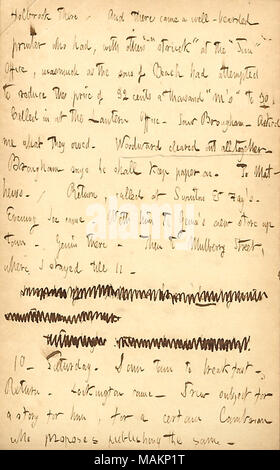 Holbrook there. And there came a well-bearded
printer who had, with others "struck" at the "Sun"
Office, inasmuch as the sons of Beach had attempted
to reduce the price of 32 cents a thousand "m's" to 30.
Called in at the Lantern Office. Saw Brougham. Asked
me what they owed. Woodward cleared out all together.
Brougham says he shall keep paper on. To Mat
hews. / Return, called at Swinton & Fay's.
Evening came. With him to new store up
town. there. Then to Mulberry Street,
where I stayed till 11.
10. Saturday. Sam to breakfast.
Return. came. Drew subject for
a story for him, for a certain
who proposes publishing the same.
alamy
Image ID: MAKP1T
www.alamy.com